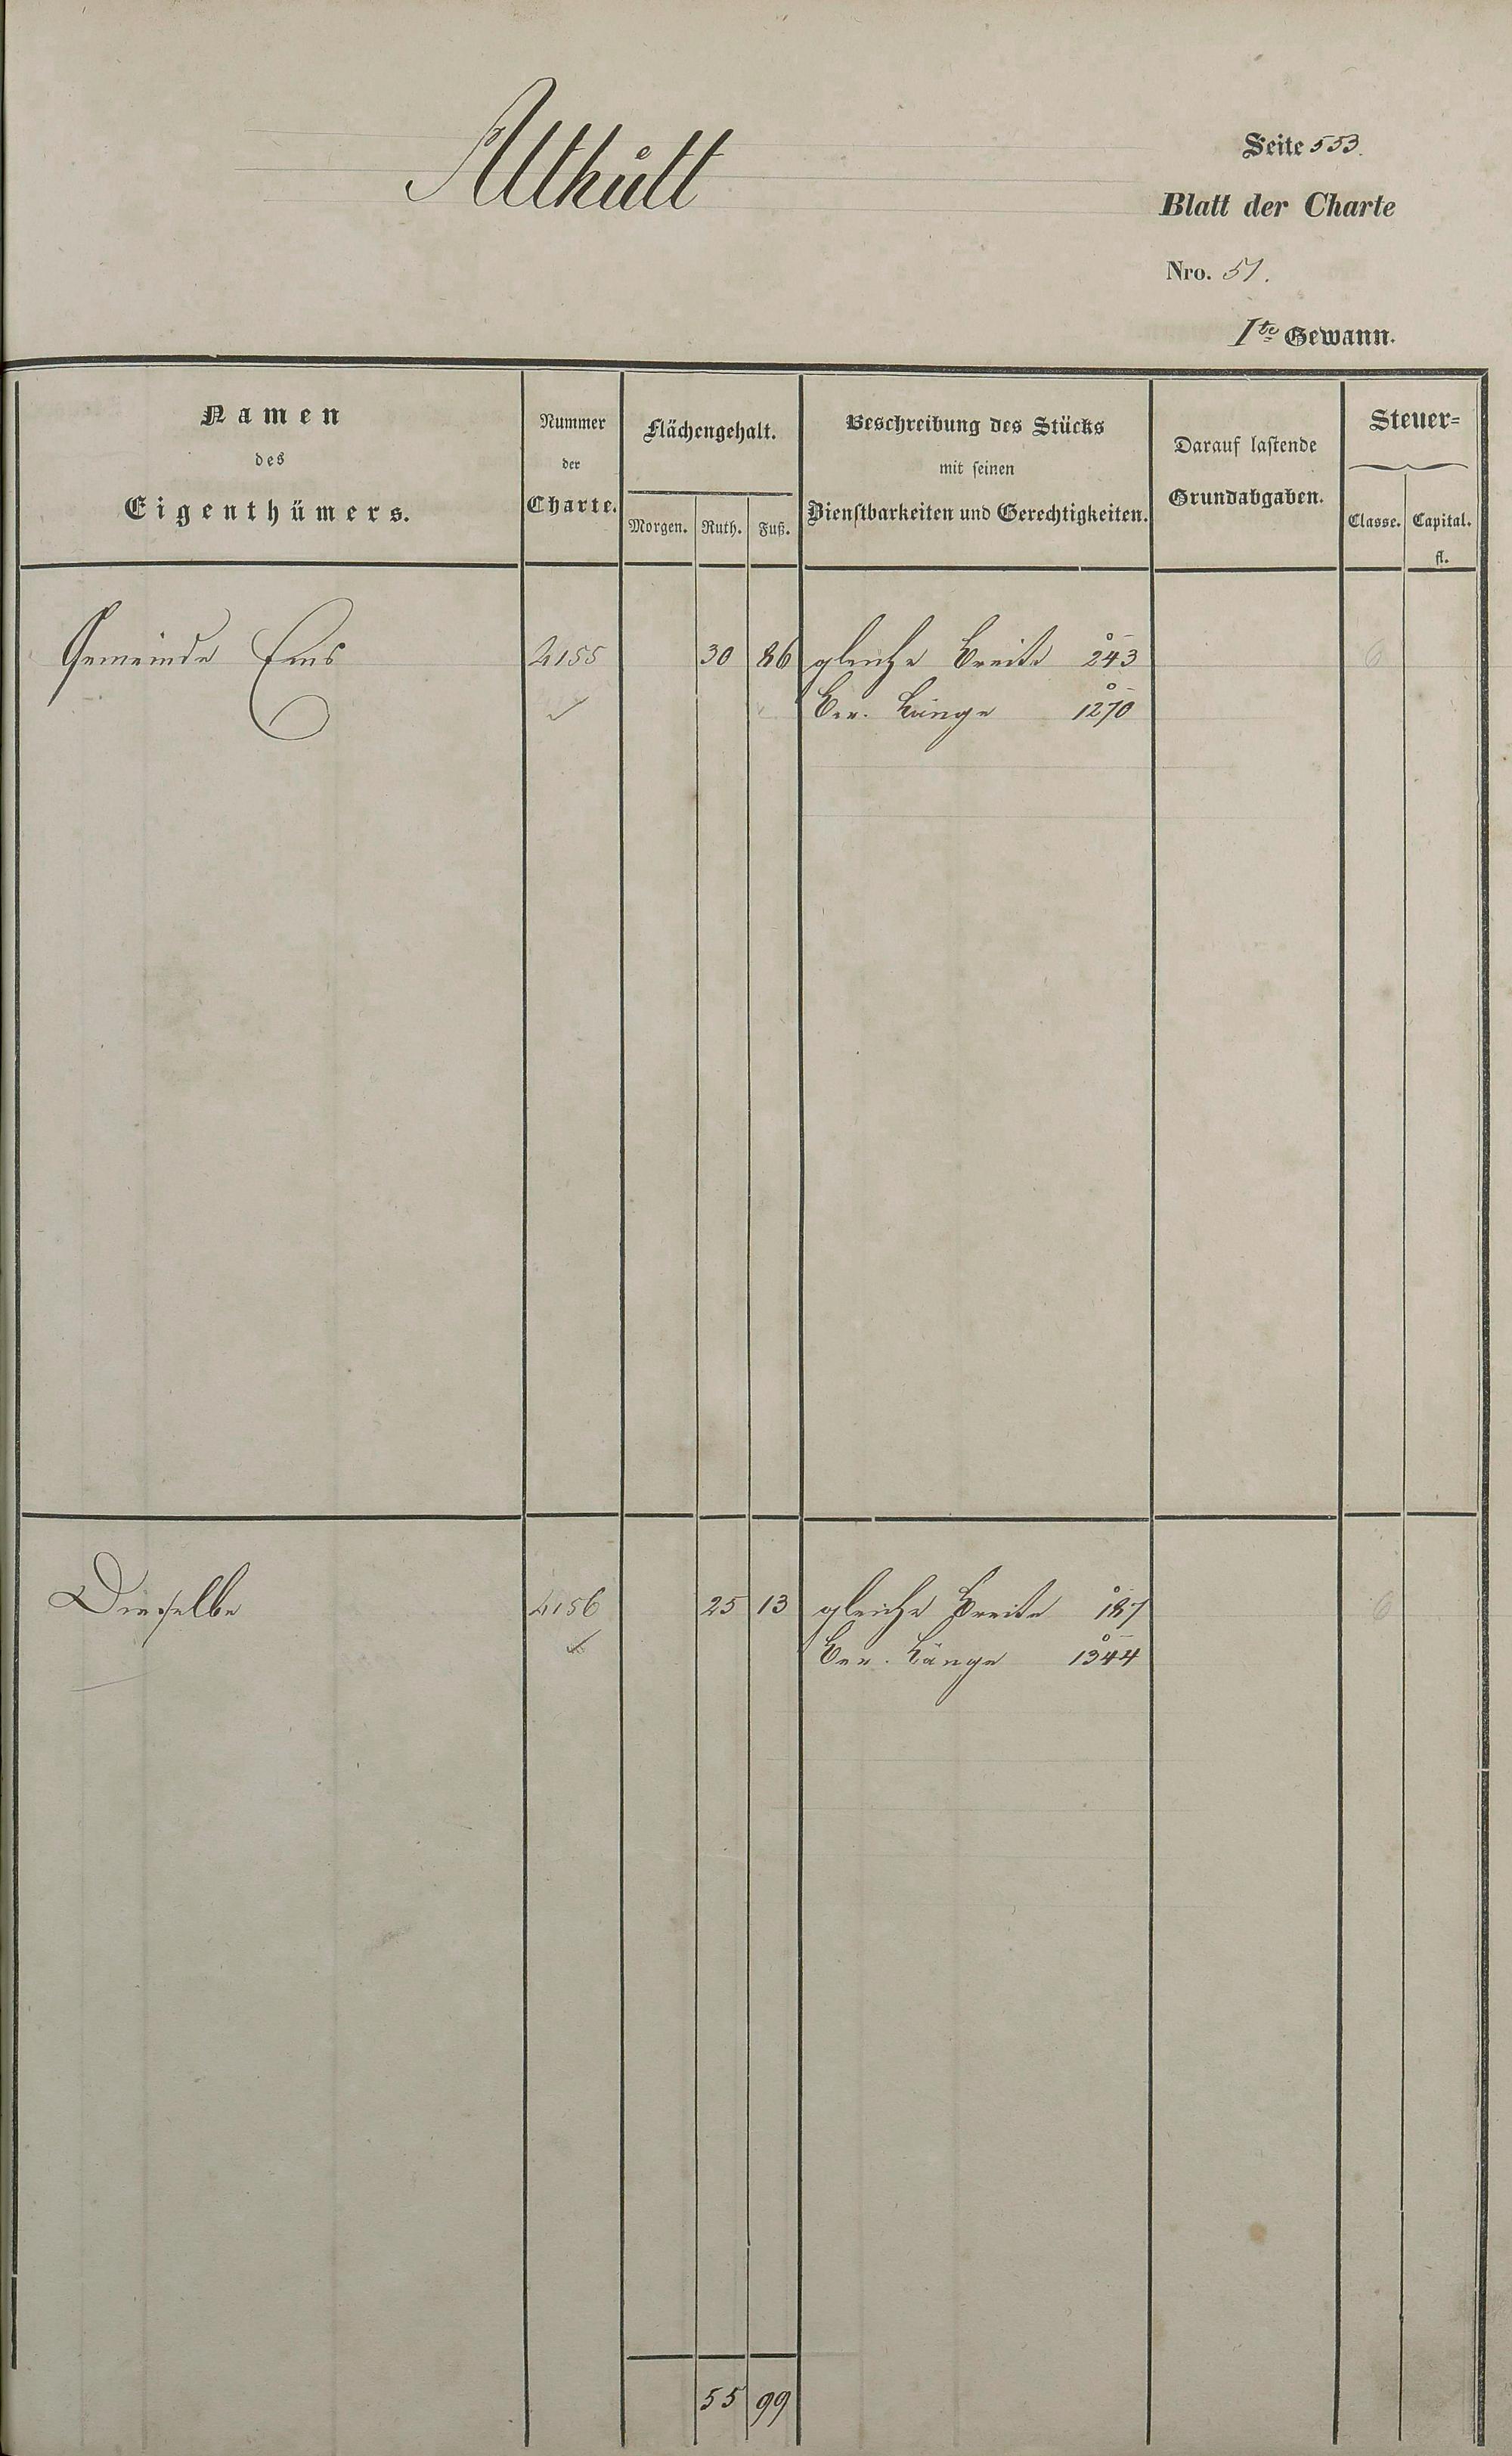 Althütt
Seite 553.
Blatt der Charte
Nro. 51.
Ite Gewann.
Namen
des
Eigenthümers.
Nummer
der
Charte.
Flächengehalt.
Morgen. Ruth. Fuß.
Beschreibung des Stücks
mit seinen
Dienstbarkeiten und Gerechtigkeiten.
Darauf lastende
Grundabgaben.
Steuer=
Classe. Capital.
fl.
Gemeinde Ems 4155 30 86 gleiche Breite 243 6
Ber. Länge 1270
Dieselbe 4156 25 13 gleiche Breite 187 6
Ber. Länge 1344
55 99